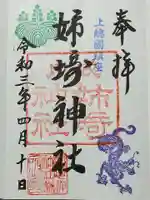 奉拝
上総國鎮座
姉埼神社
令和三年四月十日